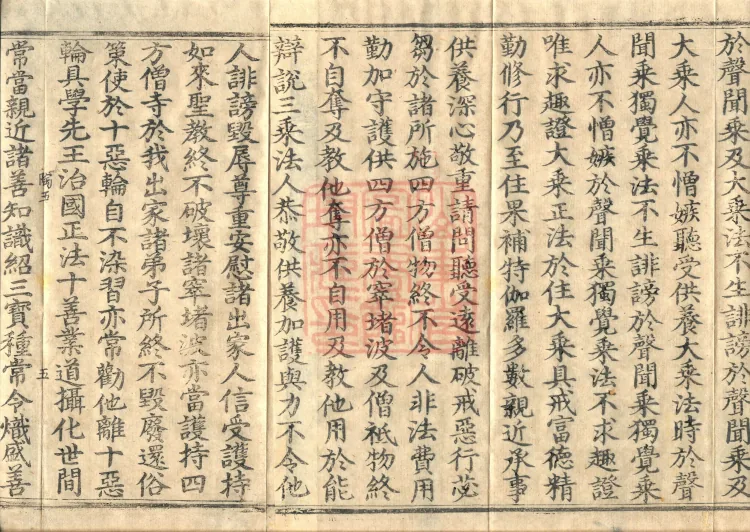 於聲聞乗及大乗法不生誹謗於聲聞乗及
大乗人亦不憎嫉聽受供養大乗法時於聲
聞乗獨覺乗法不生誹謗於聲聞乗獨覺乗
人亦不憎嫉於聲聞乗獨覺乗法不求趣證
唯求趣證大乗正法於住大乗具戒富德精
勤修行乃至住果補特伽羅多數親近承事
供養深心敬重請問聽受遠離破戒惡行苾
芻於諸所施四方僧物終不令人非法費用
勤加守護供四方僧於窣堵波及僧祇物終
不自奪及教他奪亦不自用及教他用於能
辯說三乗法人恭敬供養加護與力不令他
人誹謗毀辱尊重安慰諸出家人信受護持
如來聖教終不破壞諸窣堵波亦當護持四
方僧寺於我出家諸弟子所終不毀廢還俗
策使於十惡輪自不染習亦常勸他離十惡
輪具學先王治國正法十善業道攝化世間
五
常當親近諸善知識紹三寶種常令熾盛善